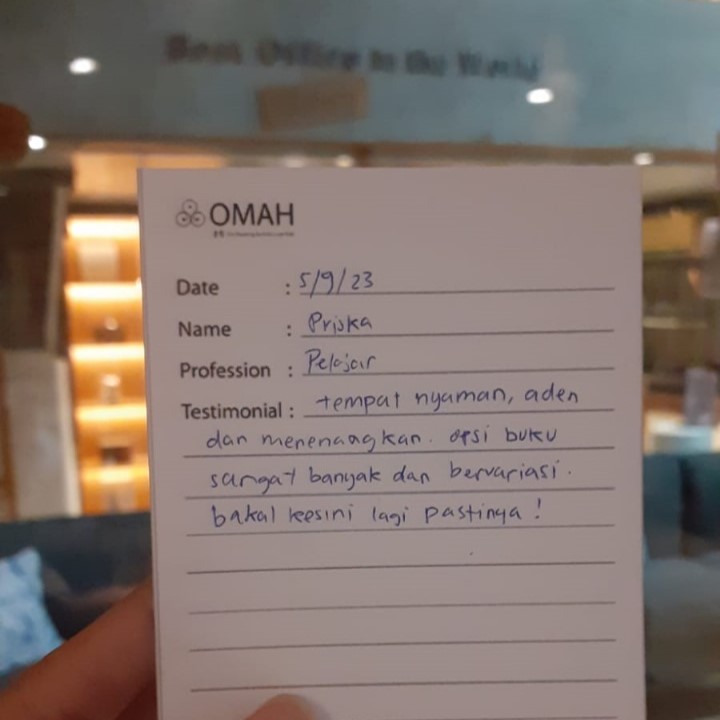 Best Office in the World
OMAH
Date : 5/9/23
Name : Priska
Profession : Pelajar
Testimonial : tempat nyaman, adem
dan menenangkan. opsi buku
sangat banyak dan bervariasi.
bakal kesini lagi pastinya !